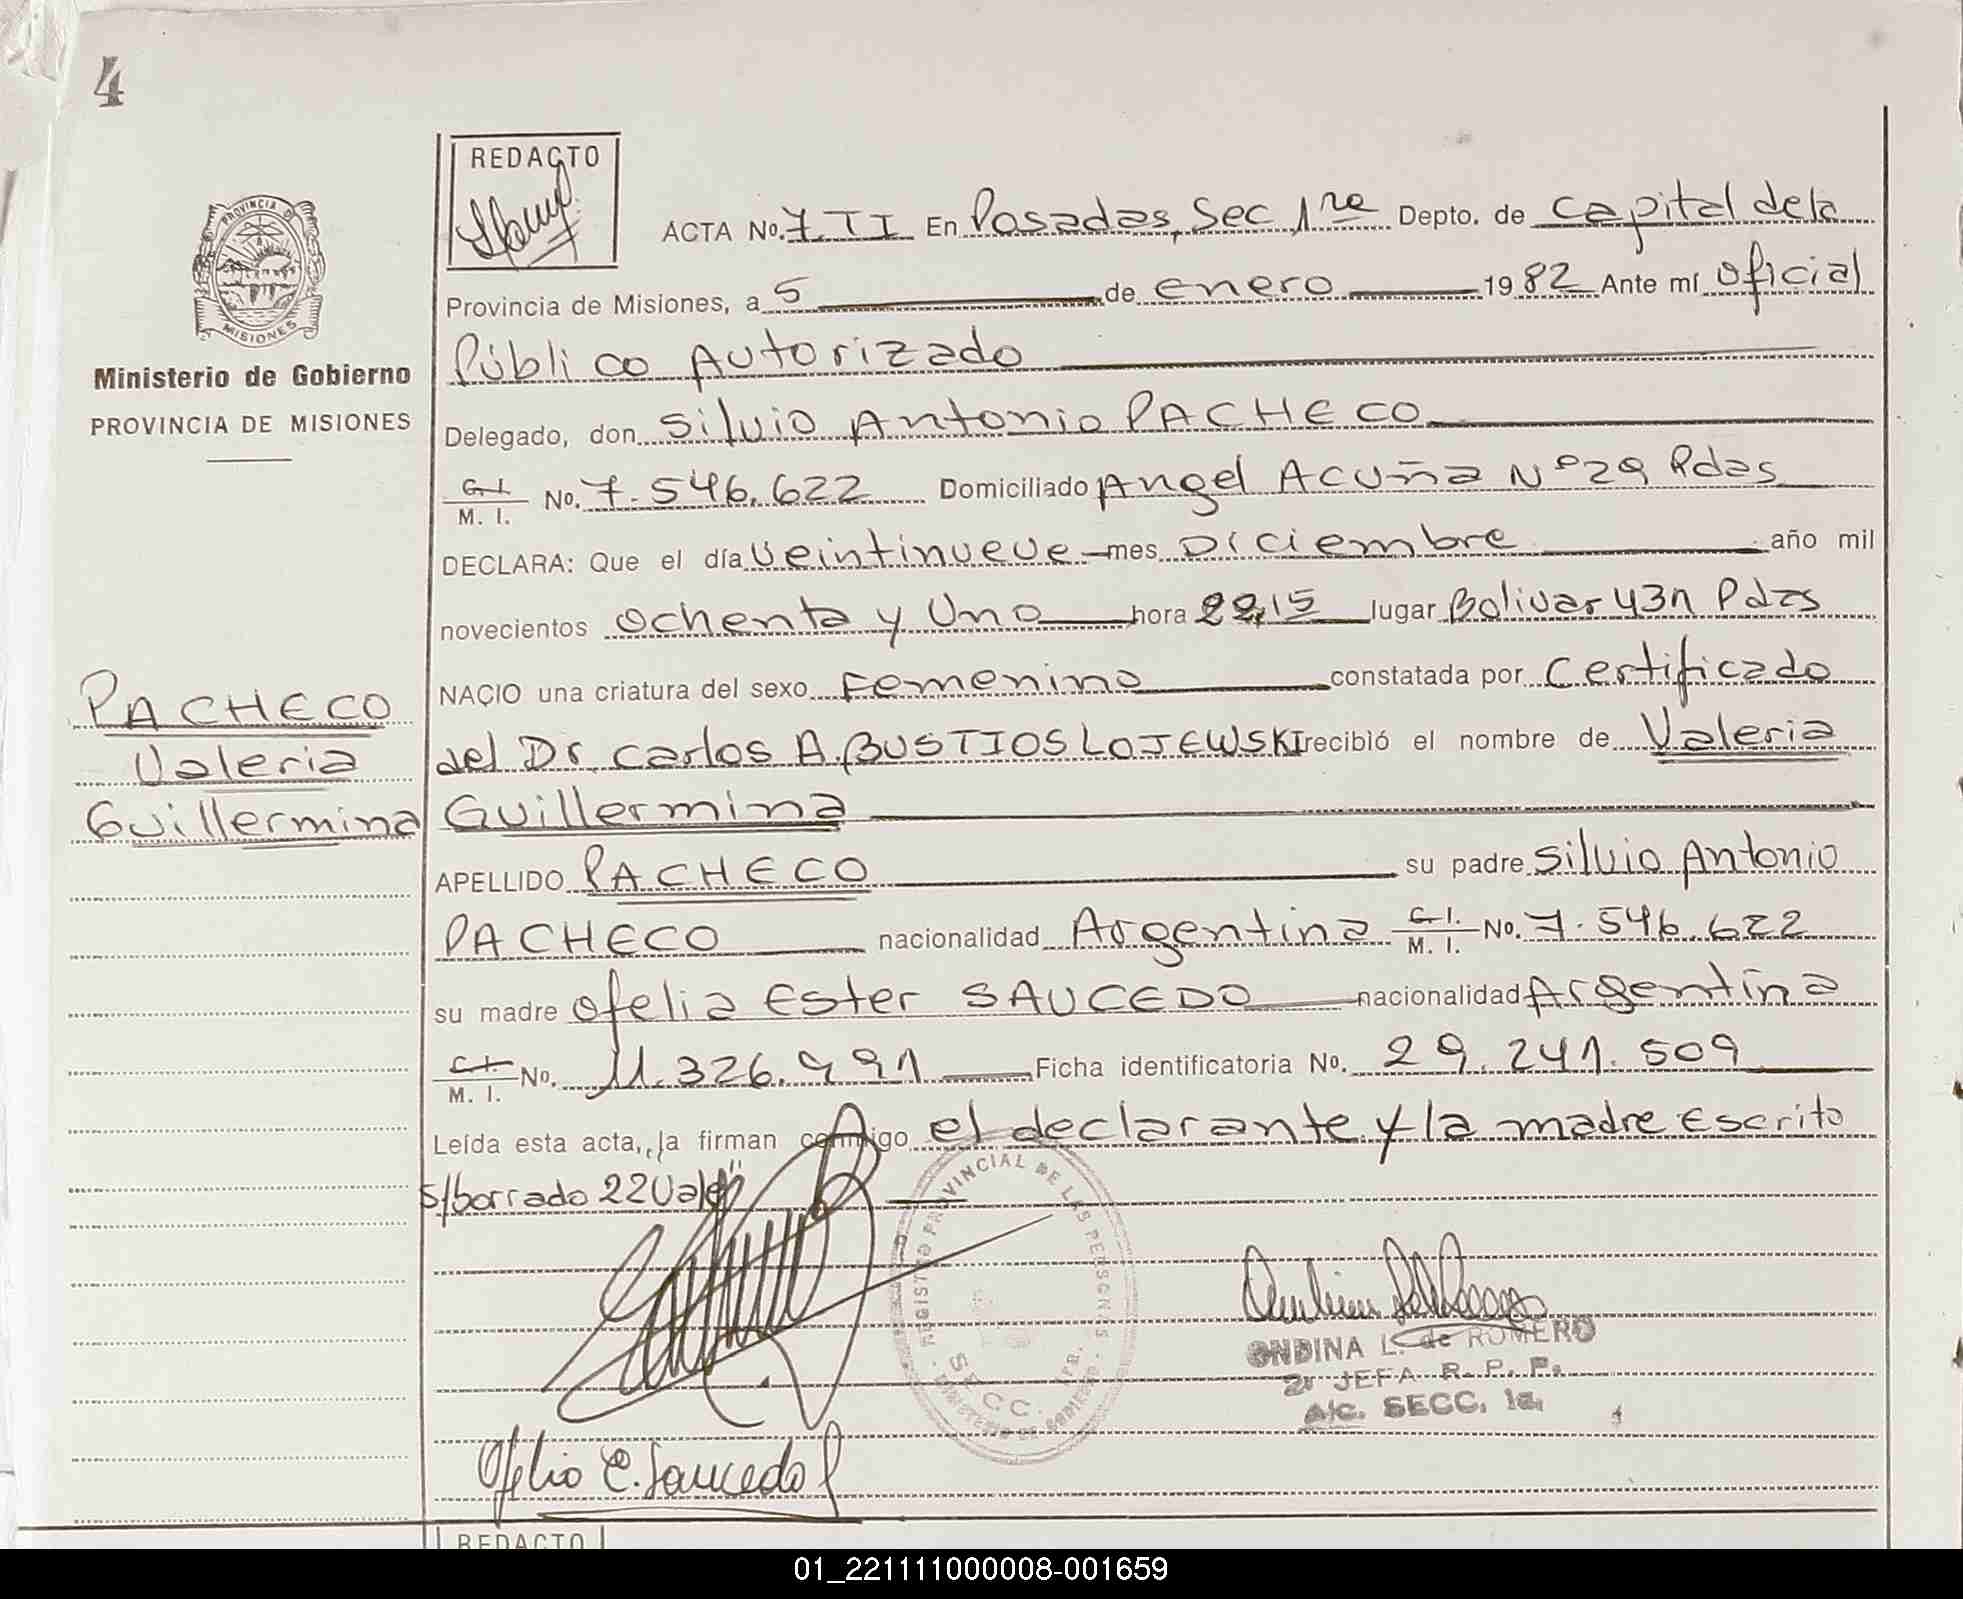 4
REDACTO
PROVINCIA D
MISIONES
Ministerio de Gobierno
PROVINCIA DE MISIONES
ACTA No. 7. TI En Posadas, Sec 1ra Depto. de Capital de la
Provincia de Misiones, a 5 de enero 1982 Ante mí oficial
Público Autorizado
Delegado, don Silvio Antonio PACHECO
C. I. M. I. No. 7.546.622 Domiciliado Angel Acuña Nº 29 Pdas
DECLARA: Que el día veintinueve mes Diciembre año mil
novecientos ochenta y Uno hora 22,15 lugar Bolivar 431 Pdas
NACIO una criatura del sexo Femenino constatada por certificado
del Dr. Carlos A. BUSTIOSLOJEWSKI recibió el nombre de Valeria
Guillermina
PACHECO
Valeria
Guillermina
APELLIDO PACHECO su padre Silvio Antonio
PACHECO nacionalidad Argentina C. I. M. I. No. 7.546.622
su madre Ofelia Ester SAUCEDO nacionalidad Argentina
C. I. M. I. No. 11.326.991 Ficha identificatoria No. 29.241.509
Leída esta acta, la firman conmigo el declarante y la madre Escrito
s/borrado 22 Vale"
REGISTRO PROVINCIAL DE LAS PERSONAS
SECC. 1RA.
MINISTERIO DE GOBIERNO
ONDINA L. de ROMERO
2ª JEFA R. P. P.
A/c. SECC. 1a.
Ofelia E. Saucedo
REDACTO
01_221111000008-001659